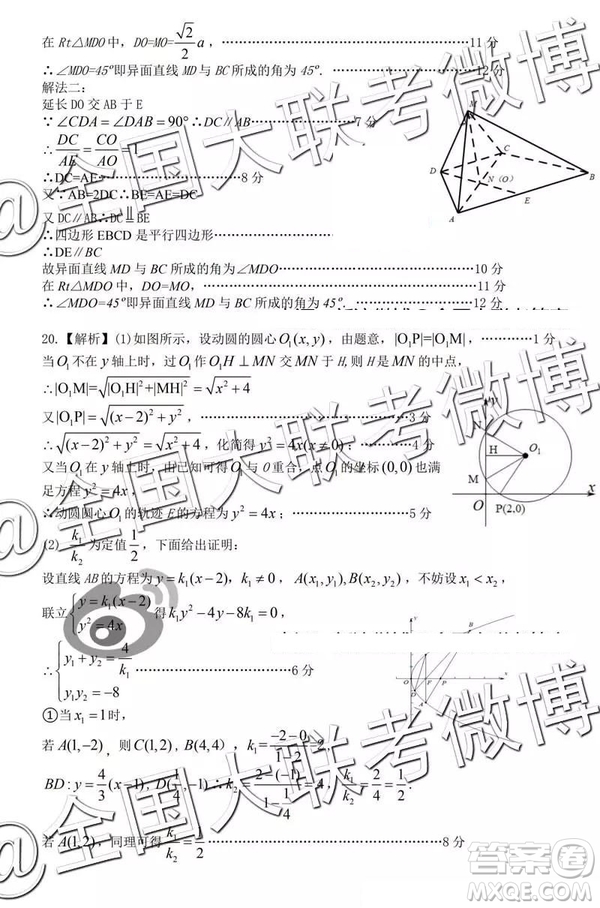 在 Rt△MDO中，DO=MO=√2/2 a，……11 分
∴∠MDO=45°即异面直线 MD 与 BC 所成的角为 45°. ……12 分
解法二：
延长 DO 交 AB 于 E
∵∠CDA=∠DAB=90°∴DC∥AB……7 分
∴DC/AE=CO/AO=1
∴DC=AE……8 分
又∵AB=2DC∴BE=AE=DC
又 DC∥AB∴DC∥BE
∴四边形 EBCD 是平行四边形
∴DE∥BC
故异面直线 MD 与 BC 所成的角为∠MDO……10 分
在 Rt△MDO 中，DO=MO，……11 分
∴∠MDO=45°即异面直线 MD 与 BC 所成的角为 45°. ……12 分
M
C
D
N(O)
B
E
A
20.【解析】(1)如图所示，设动圆的圆心O₁(x,y)，由题意，|O₁P|=|O₁M|，……1 分
当O₁不在 y 轴上时，过O₁作O₁H⊥MN 交 MN 于 H,则 H 是 MN 的中点，
∴|O₁M|=√(|O₁H|²+|MH|²)=√(x²+4)
又|O₁P|=√((x-2)²+y²)，……3 分
∴√((x-2)²+y²)=√(x²+4)，化简得 y²=4x(x≠0)
又当O₁在 y 轴上时，O₁与 O 重合，点O₁的坐标(0,0)也满
足方程 y²=4x，
∴动圆圆心O₁的轨迹 E 的方程为 y²=4x；……5 分
y
N
H
O₁
M
O
P(2,0)
x
(2) k₁/k₂ 为定值 1/2，下面给出证明：
设直线 AB 的方程为 y=k₁(x-2)，k₁≠0， A(x₁,y₁),B(x₂,y₂)，不妨设 x₁<x₂
联立{y=k₁(x-2) y²=4x 得 k₁y²-4y-8k₁=0，
∴{y₁+y₂=4/k₁ y₁y₂=-8 ……6 分
①当 x₁=1 时，
若 A(1,-2)，则 C(1,2)，B(4,4)）， k₁=(-2-0)/(1-2)=2,
BD:y=4/3(x-1),D(1/4,-1)∴k₂=(2-(-1))/(1-1/4)=4, k₁/k₂=2/4=1/2.
若 A(1,2)，同理可得 k₁/k₂=1/2 ……8 分
@全国大联考微博
@全国大联考微博
@全国大联考微博
答案圈
MXQE.COM